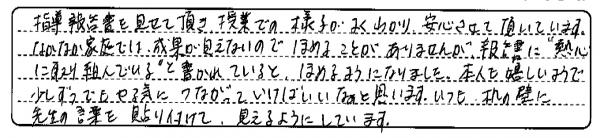 指導報告書を見せて頂き授業での様子がよくわかり、安心させて頂いています。
なかなか家庭では、成果が見えないのでほめることがありませんが、報告書に"熱心
に取り組んでいる"と書かれていると、ほめるようになりました。本人も嬉しいようで
少しずつでもやる気につながっていけばいいなあと思います。いつも、机の壁に
先生の言葉を貼り付けて、見えるようにしています。